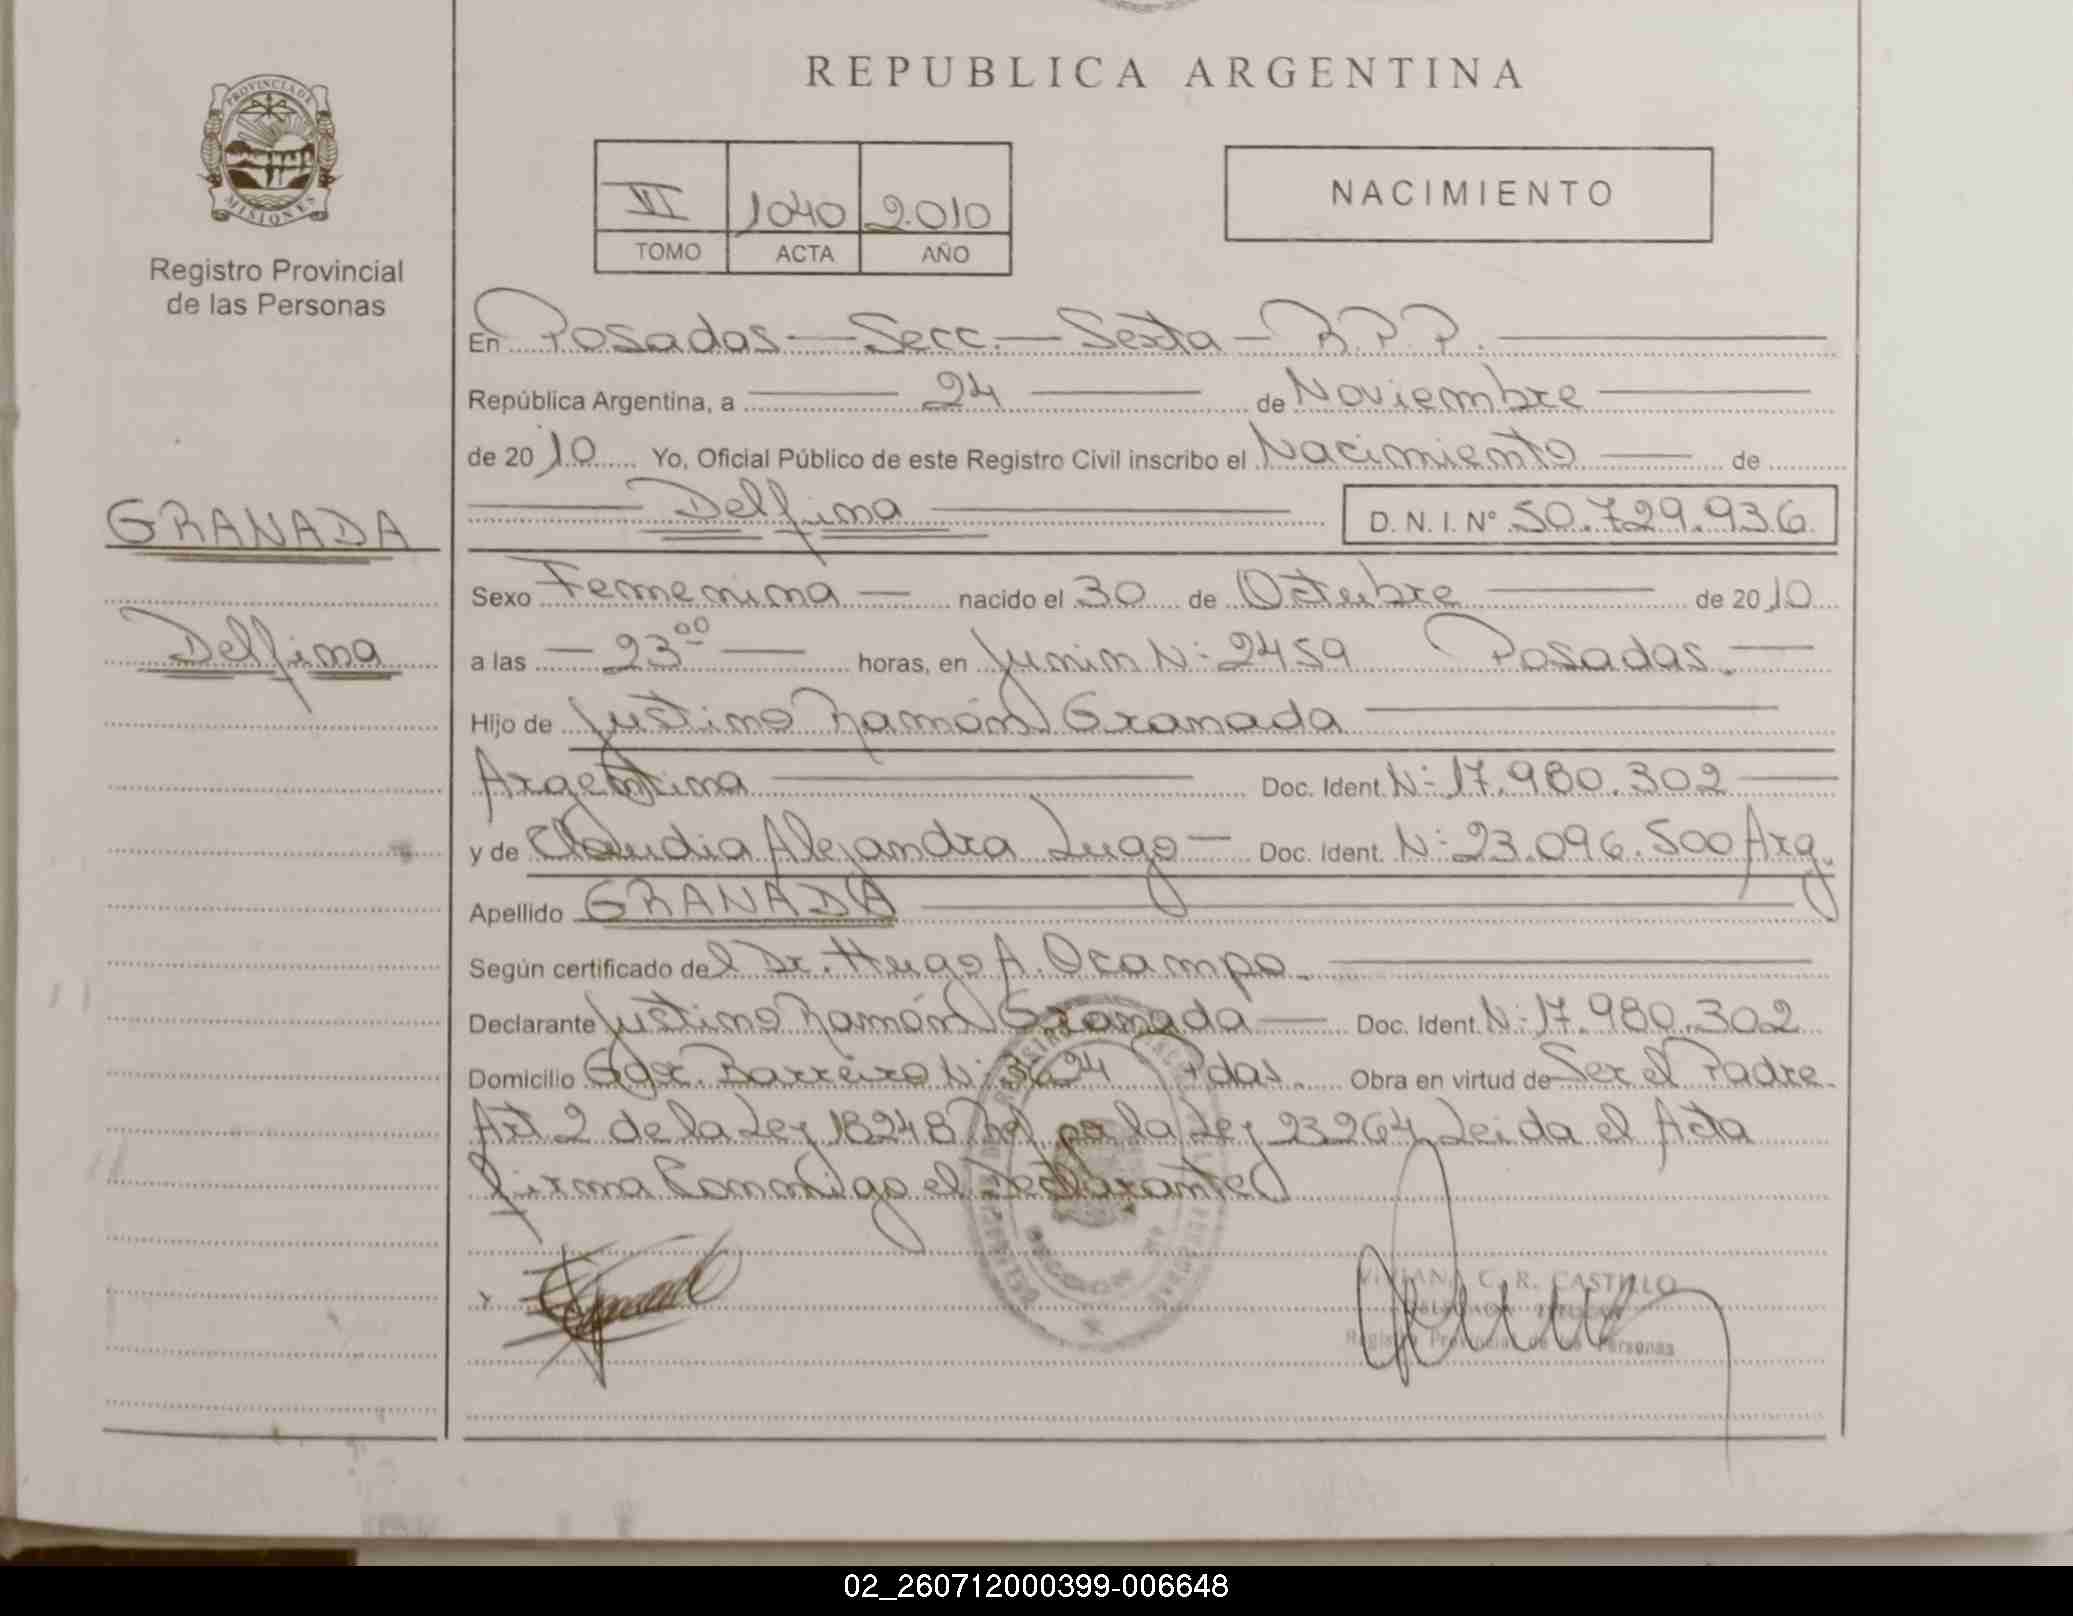 PROVINCIA DE
MISIONES
Registro Provincial
de las Personas
GRANADA
Delfina
REPUBLICA ARGENTINA
VI 1040 2.010
TOMO ACTA AÑO
NACIMIENTO
En Posadas - Secc. - Sexta - R.P.P.
República Argentina, a 24 de Noviembre
de 2010 Yo, Oficial Público de este Registro Civil inscribo el Nacimiento de
Delfina D.N.I. Nº 50.729.936
Sexo Femenina nacido el 30 de Octubre de 2010
a las 23 00 horas, en Junin Nº 2459 Posadas.
Hijo de Justino Ramón Granada
Argentina Doc. Ident. Nº 17.980.302
y de Claudia Alejandra Lugo Doc. Ident. Nº 23.096.500 Arg.
Apellido GRANADA
Según certificado del Dr. Hugo A. Ocampo.
Declarante Justino Ramón Granada Doc. Ident. Nº 17.980.302
Domicilio Gdor. Barreiro Nº Pdas. Obra en virtud de Ser el Padre.
Art 2 de la Ley 18248 por la Ley 23264 Leida el Acta
firma Conmigo el Declarante
C. R. CASTILLO
Registro Provincial de las Personas
02_260712000399-006648